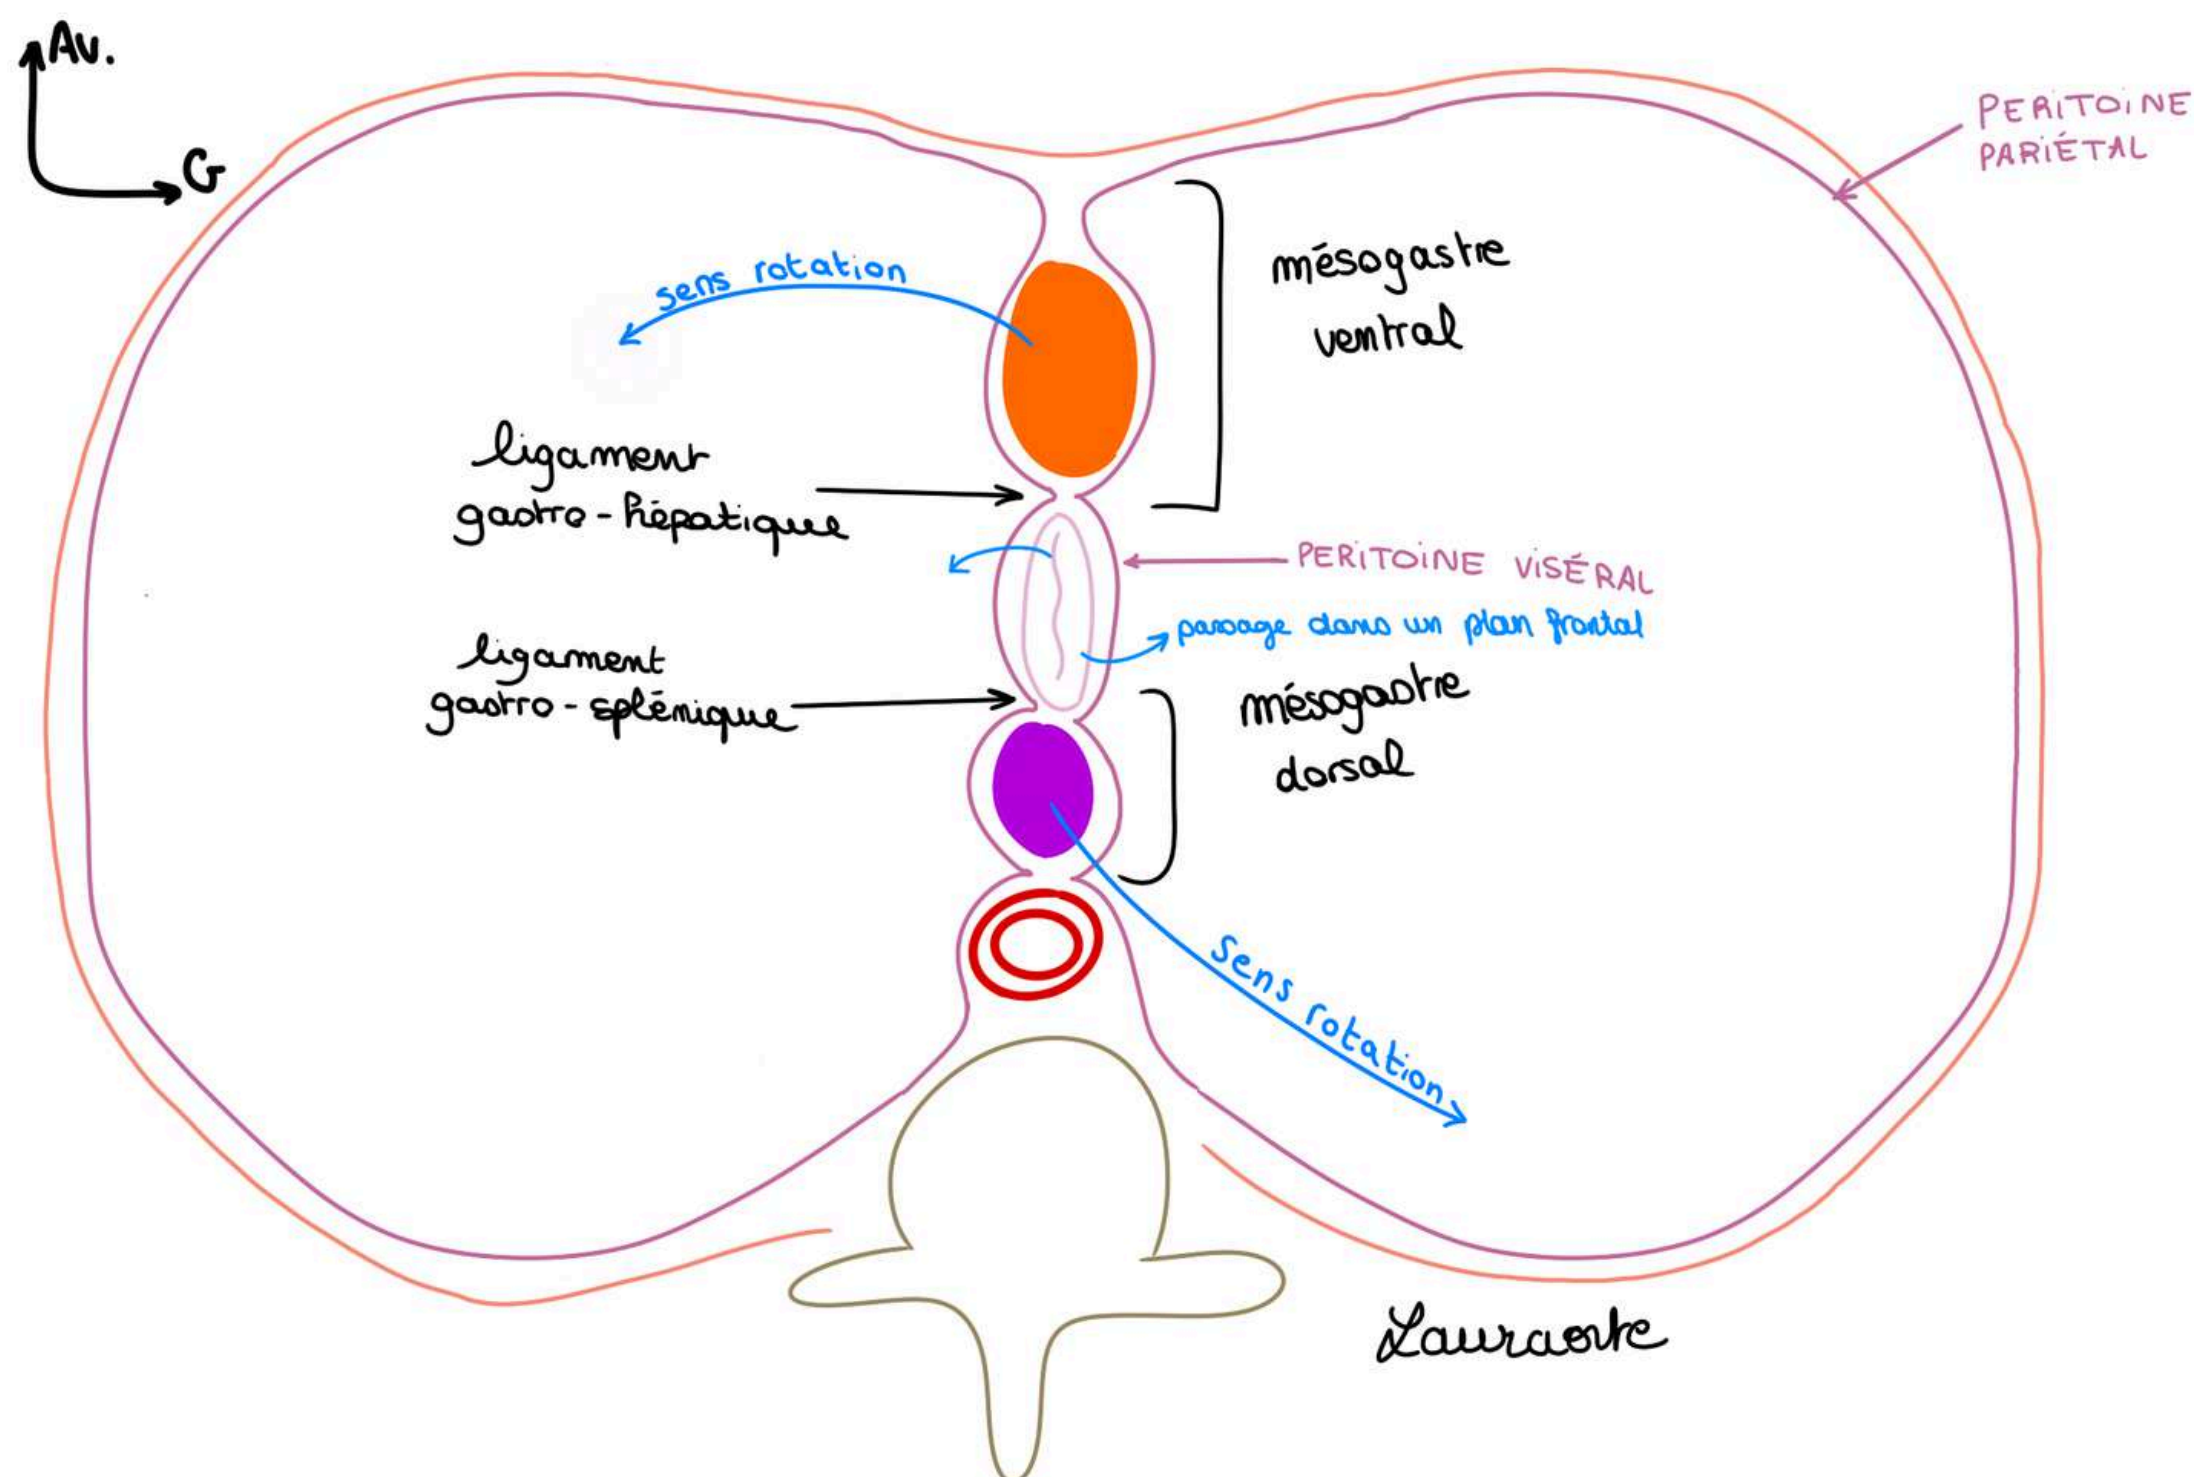 Av.
G
PERITOINE
PARIÉTAL
sens rotation
mésogastre
ventral
ligament
gastro-hépatique
PERITOINE VISÉRAL
passage dans un plan frontal
ligament
gastro-splénique
mésogastre
dorsal
Sens rotation
Lauraorte